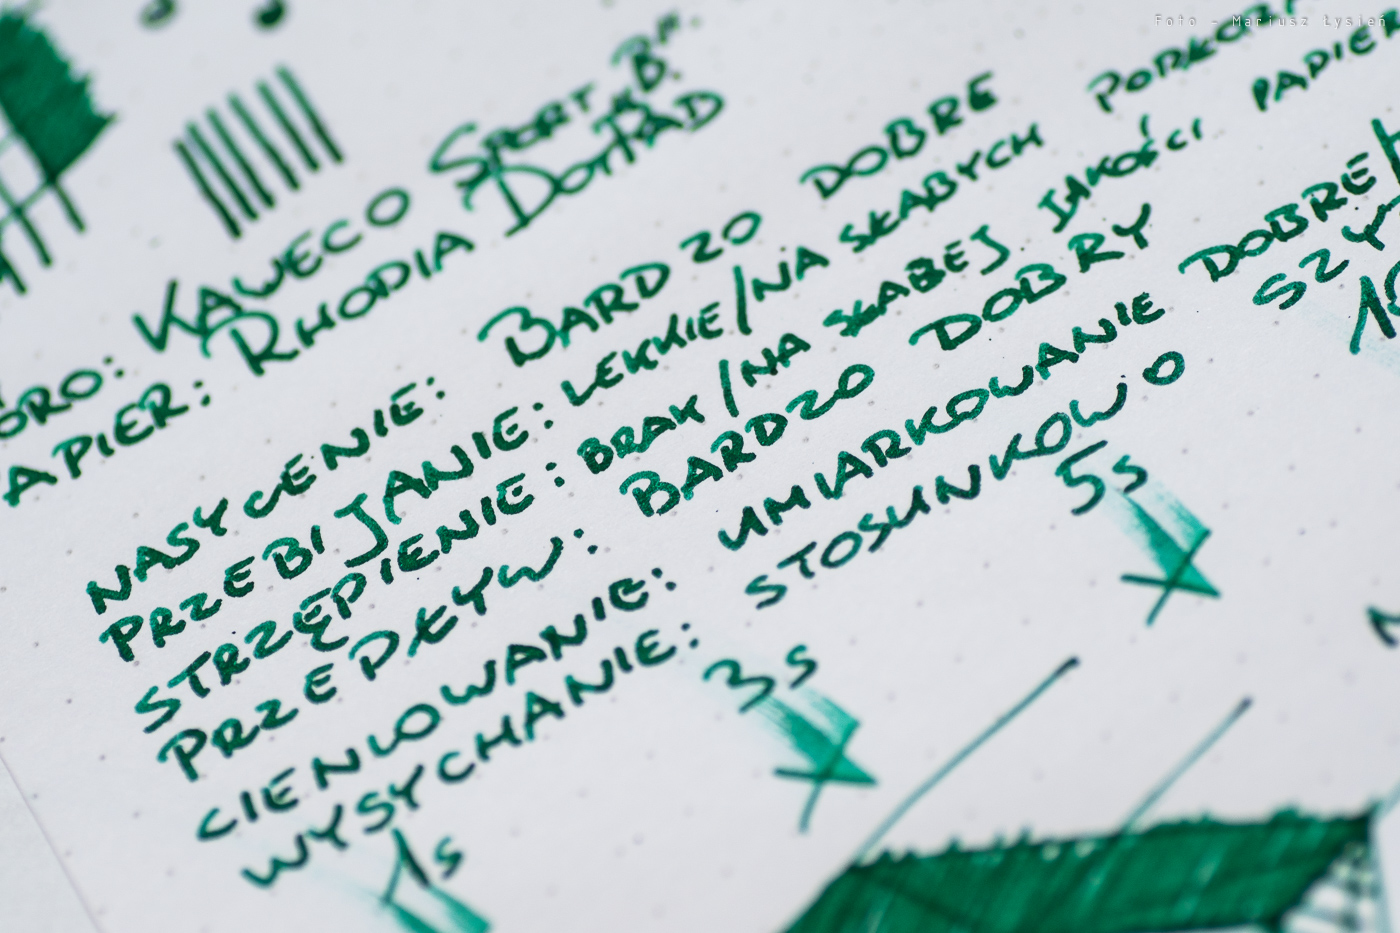 Foto - Mariusz Łysień
KAWECO SPORT "B".
PAPIER: RHODIA DOTPAD
NASYCENIE: BARDZO DOBRE
PRZEBIJANIE: LEKKIE/NA SŁABYCH
STRZĘPIENIE: BRAK/NA SŁABEJ JAKOŚCI PAPIER
PRZEPŁYW: BARDZO DOBRY
CIENIOWANIE: UMIARKOWANIE DOBRE/
WYSYCHANIE: STOSUNKOWO SZY
1s 3s 5s 10